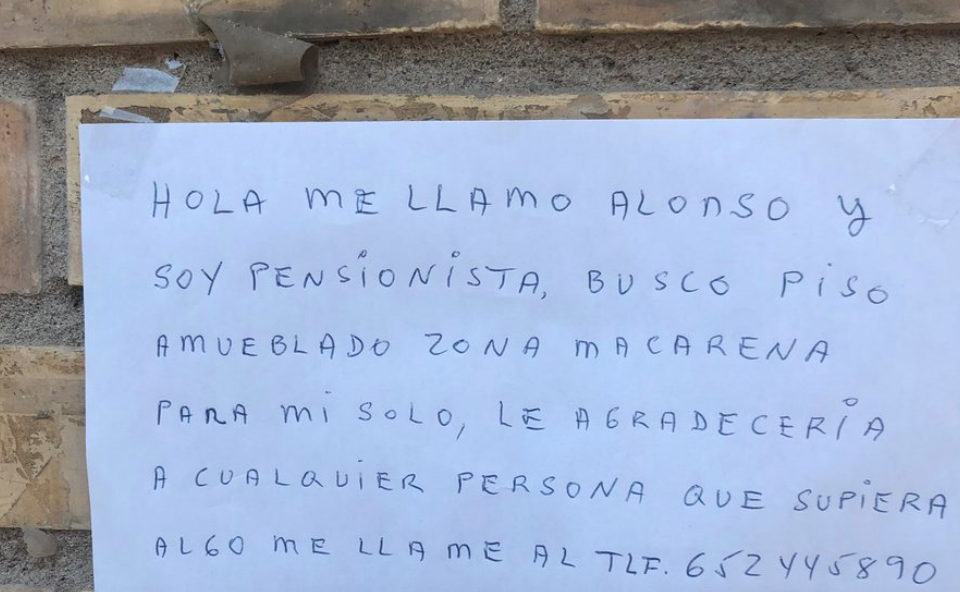 HOLA ME LLAMO ALONSO Y
SOY PENSIONISTA, BUSCO PISO
AMUEBLADO ZONA MACARENA
PARA MI SOLO, LE AGRADECERIA
A CUALQUIER PERSONA QUE SUPIERA
ALGO ME LLAME AL TLF. 652445890